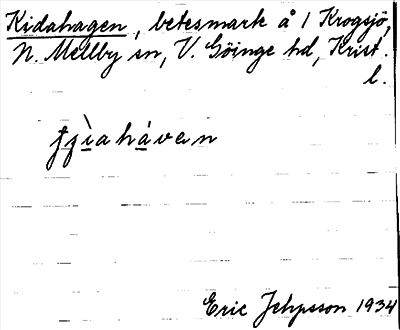 Kidahagen, betesmark å 1 Krogsjö,
N. Mellby sn, V. Göinge hd, Krist.
l.
Eric Jehpsson 1934